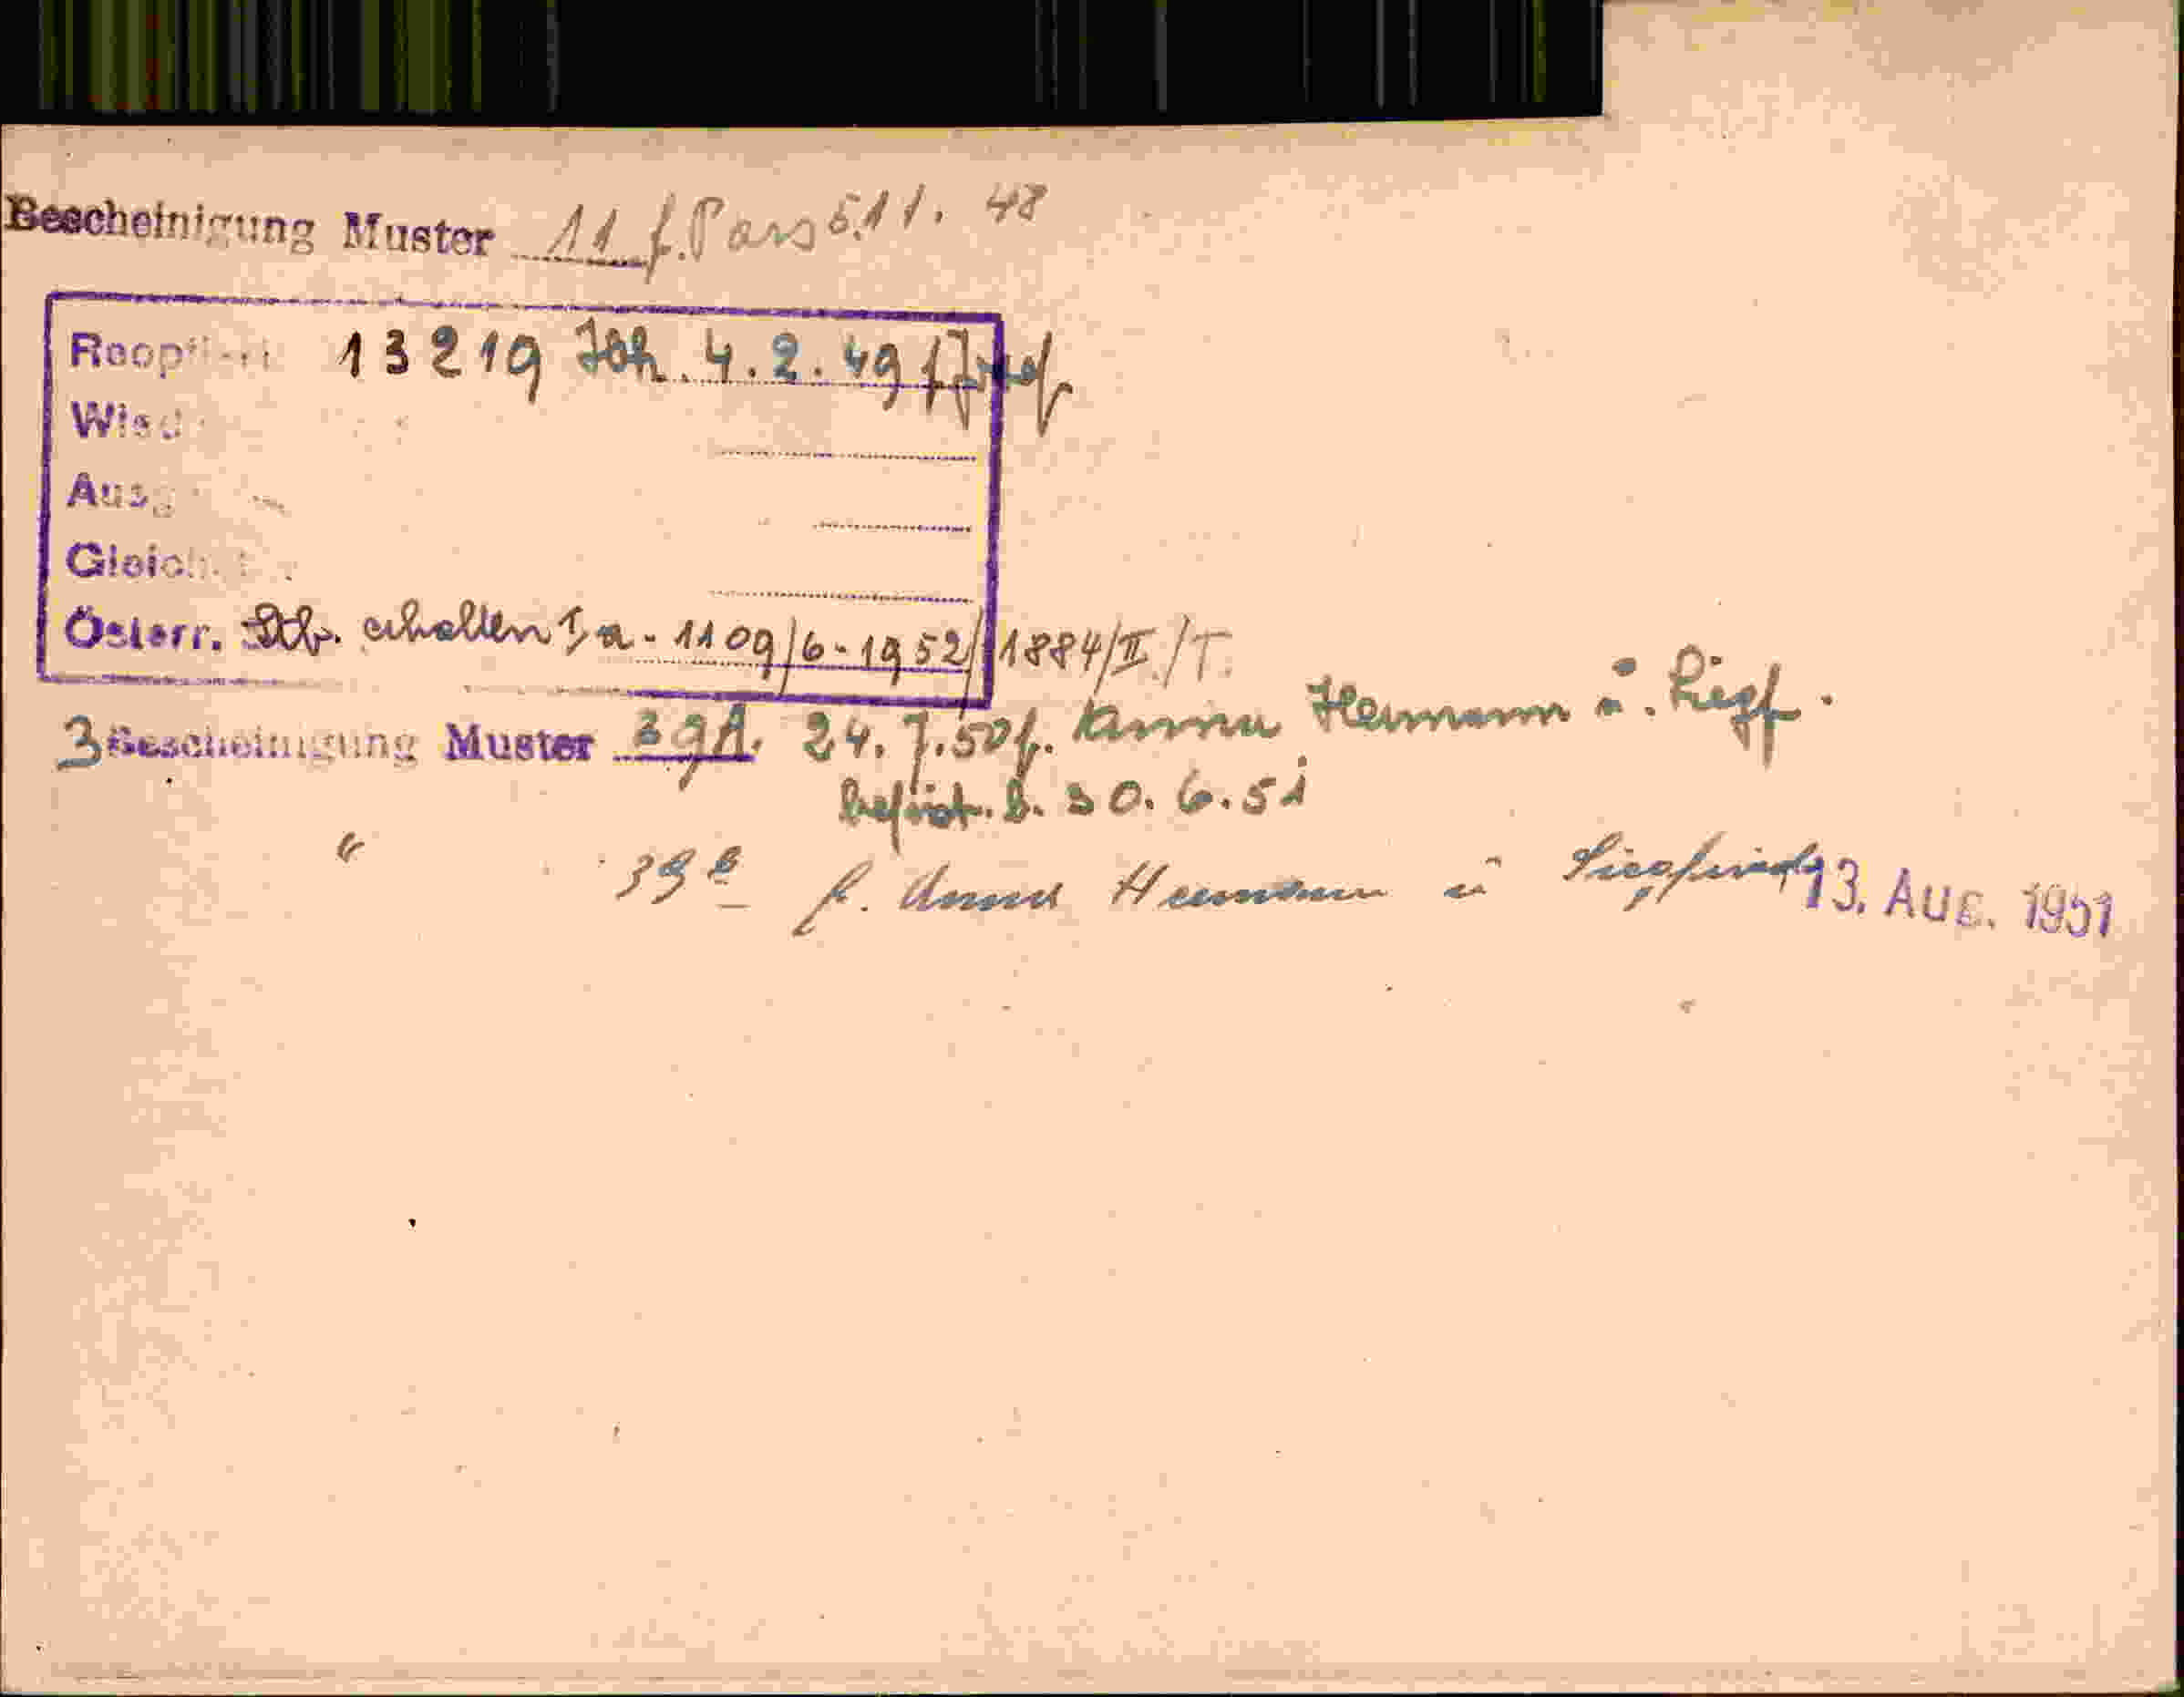 Bescheinigung Muster 11 f. Pass 5.11. 48
13219 Joh. 4.2.49
Österr. Stb. erhalten Ia - 1109/6-1952/ 1884/II./T.
3 Bescheinigung Muster 39A. 24.7.50 f. Anna, Hermann u. Siegf.
befrist. b. 30.6.51
" 39 f. Anna Hermann u Siegfried 13. Aug. 1951